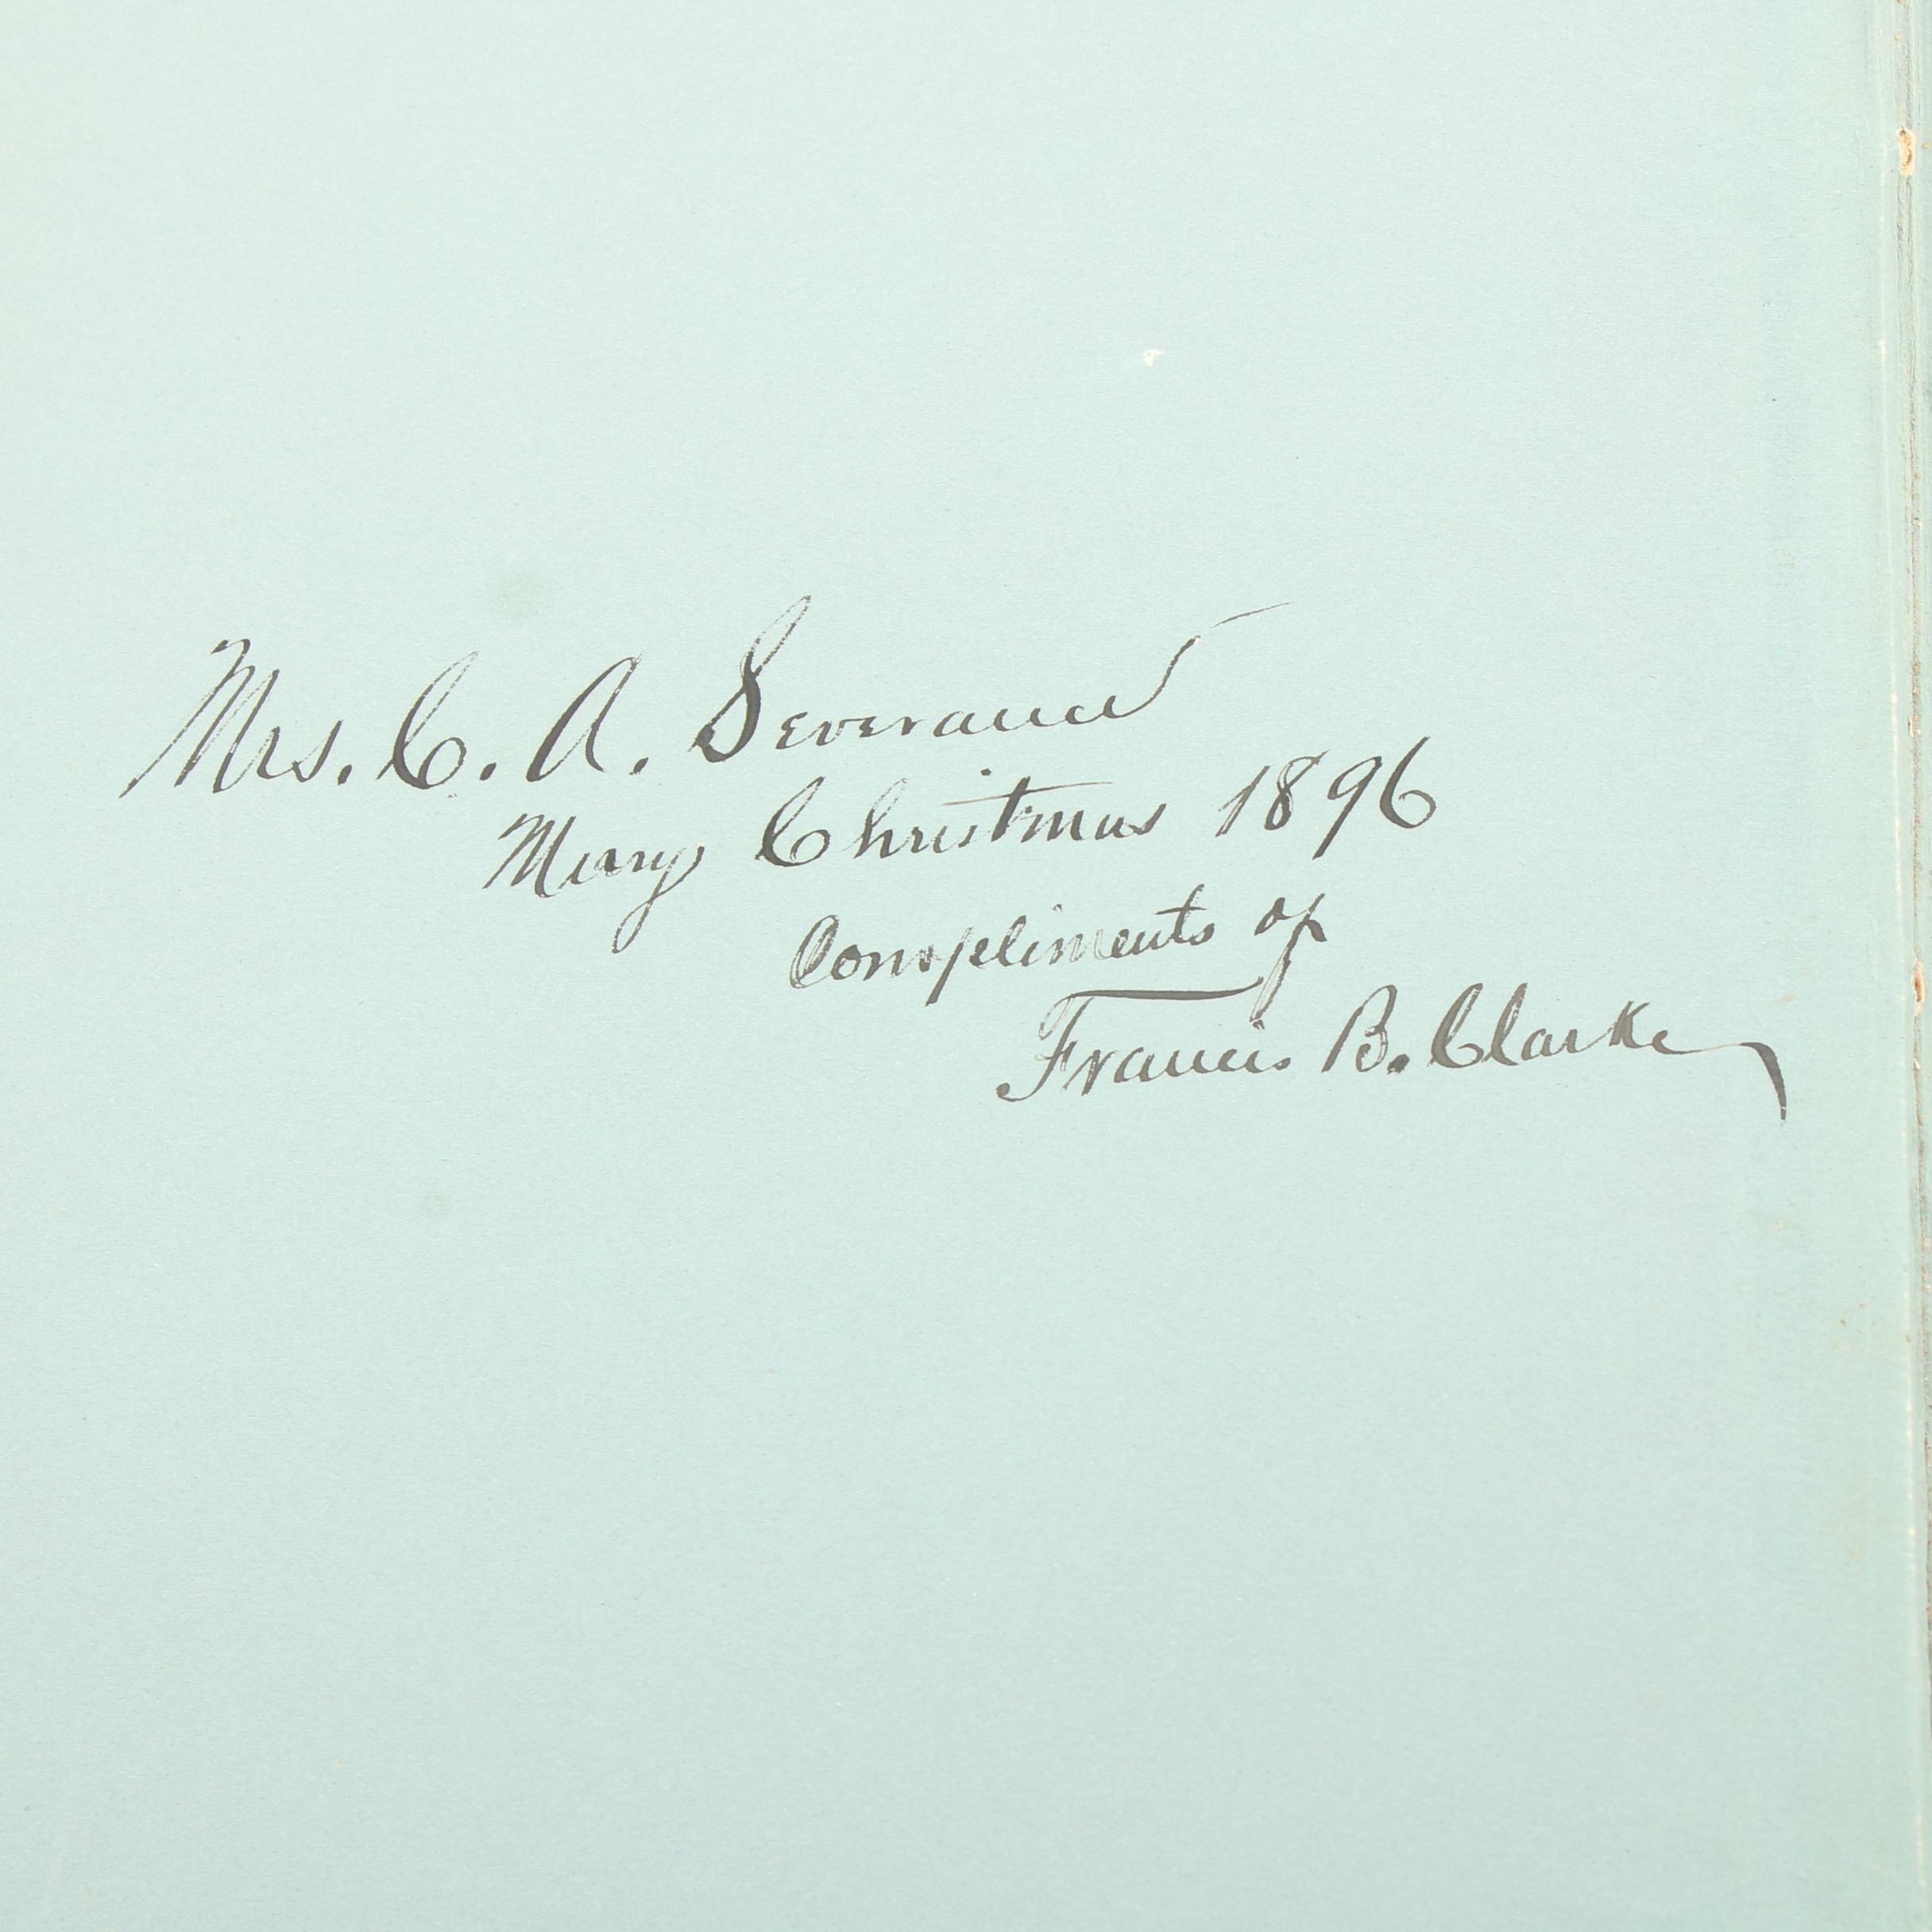 Mrs. C. A. Severance
Merry Christmas 1896
Compliments of
Francis B. Clarke